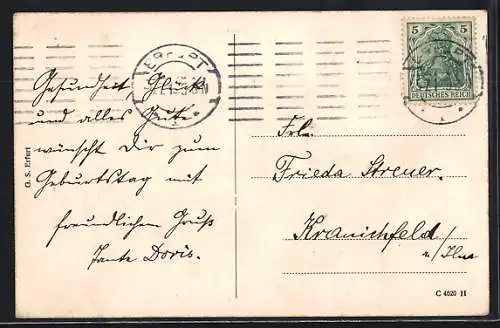 ERFURT
5 5
DEUTSCHES REICH
Gesundheit, Glück
und alles Gute
wünscht Dir zum
Geburtstag mit
freundlichem Gruß
Tante Doris.
G. S. Erfurt
Frl.
Frieda Streuer.
Kranichfeld
a/Ilm
C 4020 11